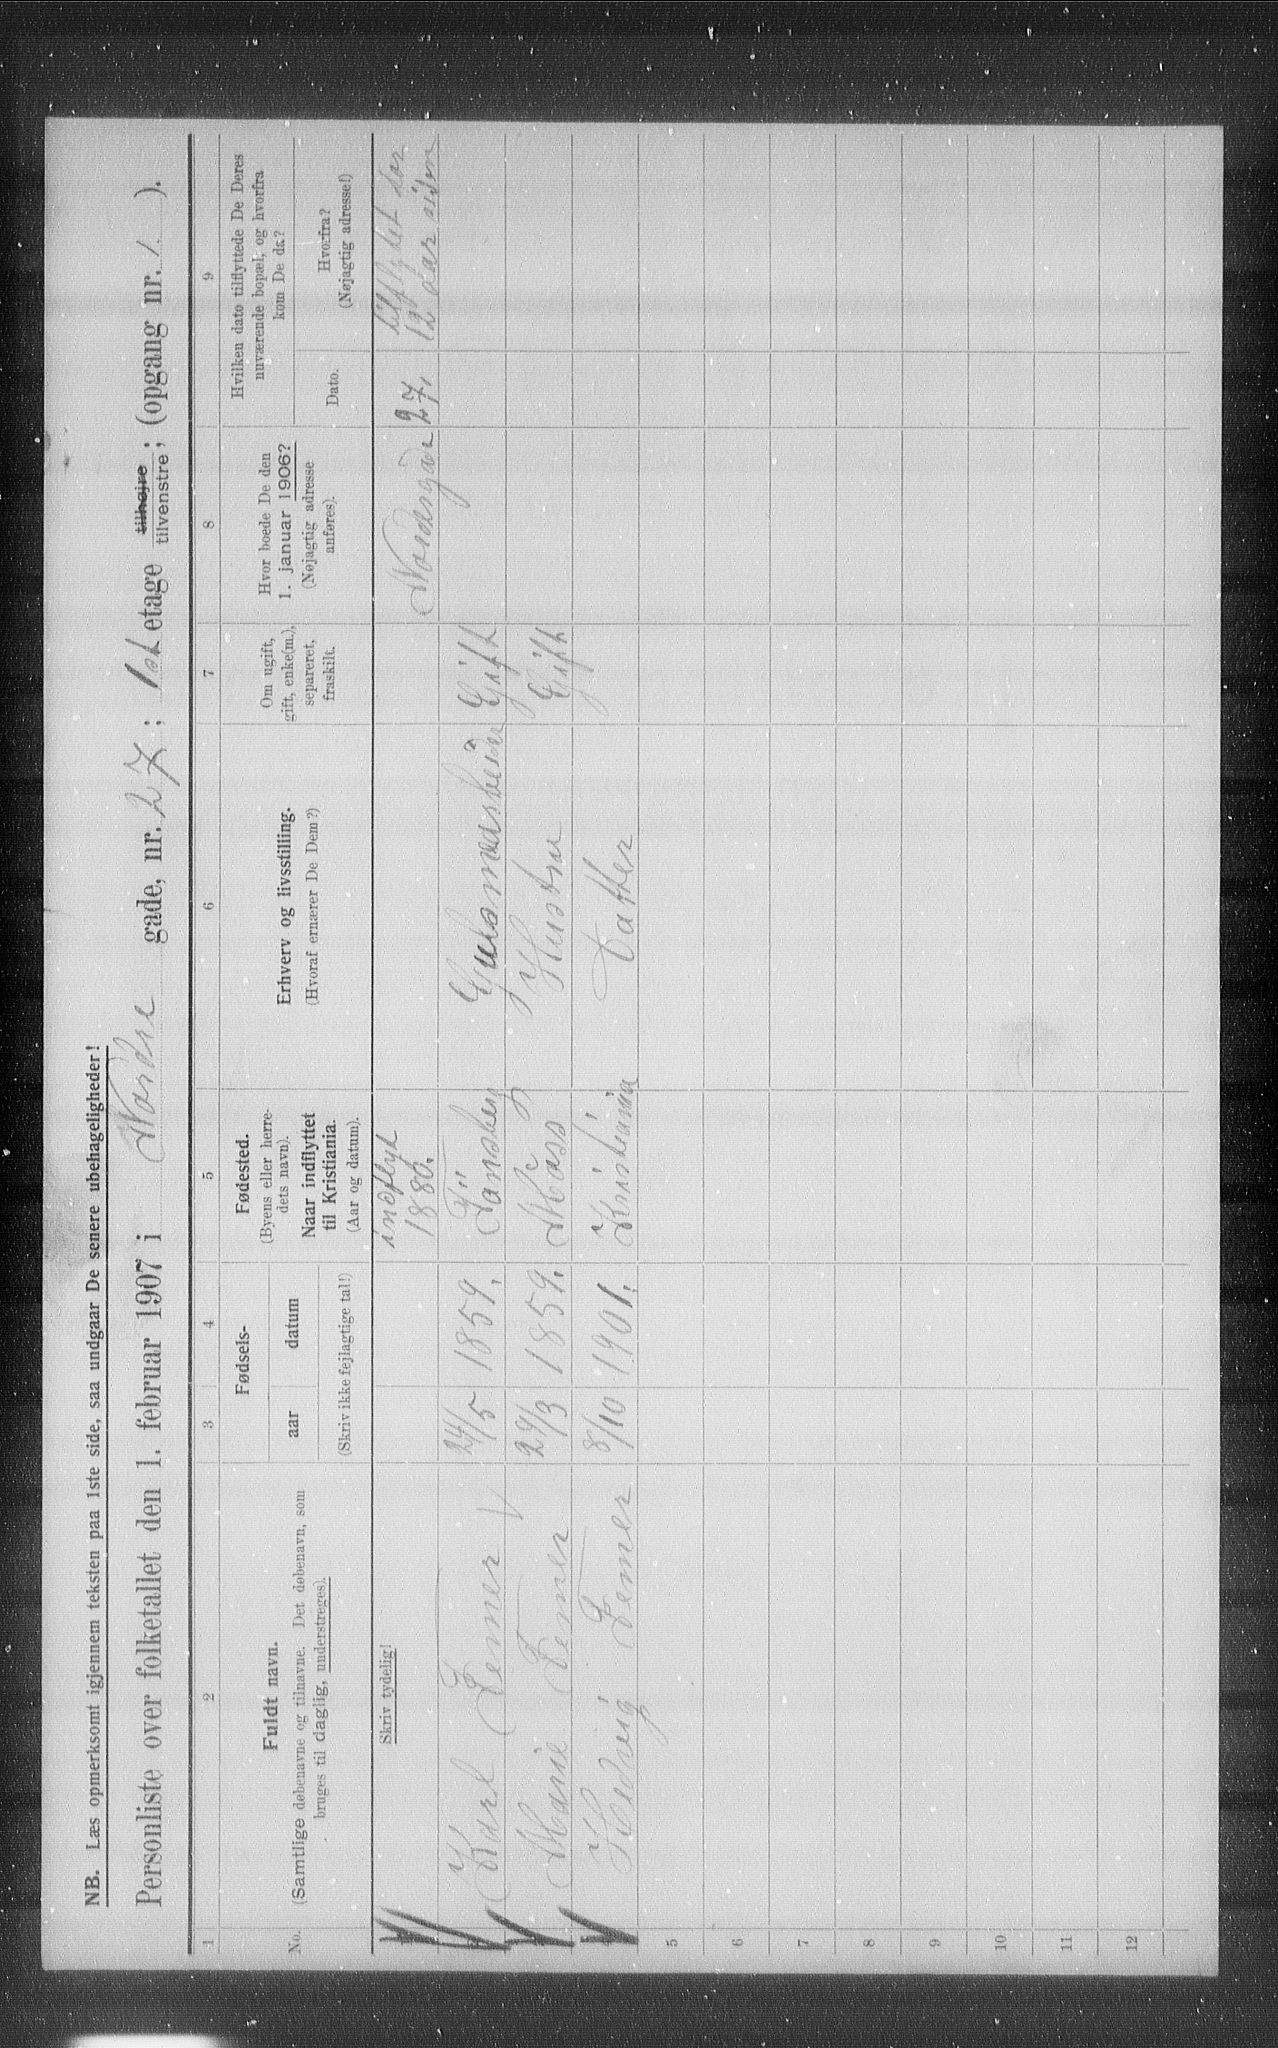 NB. Læs opmerksomt igjennem teksten paa 1ste side, saa undgaar De senere ubehageligheder!
Personliste over folketallet den 1. februar 1907 i Nordre gade, nr. 27; 1st etage tilhøjre tilvenstre; (opgang nr. 1.).
1 2 3 4 5 6 7 8 9
No.
Fuldt navn.
(Samtlige døbenavne og tilnavne. Det døbenavn, som
bruges til daglig, understreges).
Fødsels-
aar datum
(Skriv ikke fejlagtige tal!)
Fødested.
(Byens eller herre-
dets navn).
Naar indflyttet
til Kristiania.
(Aar og datum).
Erhverv og livsstilling.
(Hvoraf ernærer De Dem?)
Om ugift,
gift, enke(m.),
separeret,
fraskilt.
Hvor boede De den
1. januar 1906?
(Nøjagtig adresse
anføres).
Hvilken dato tilflyttede De Deres
nuværende bopæl, og hvorfra
kom De da?
Dato.
Hvorfra?
(Nøjagtig adresse!)
Skriv tydelig!
indflyt
1886.
Nordregade 27,
tilflytet for
12 aar siden
Karl Femer 24/5 1859. Tønsberg Gulvmarbeider Gift
Marie Femer 29/3 1859. Moss Hustru Gift
Hedvig Femer 8/10 1901. Kristiania Datter
5
6
7
8
9
10
11
12